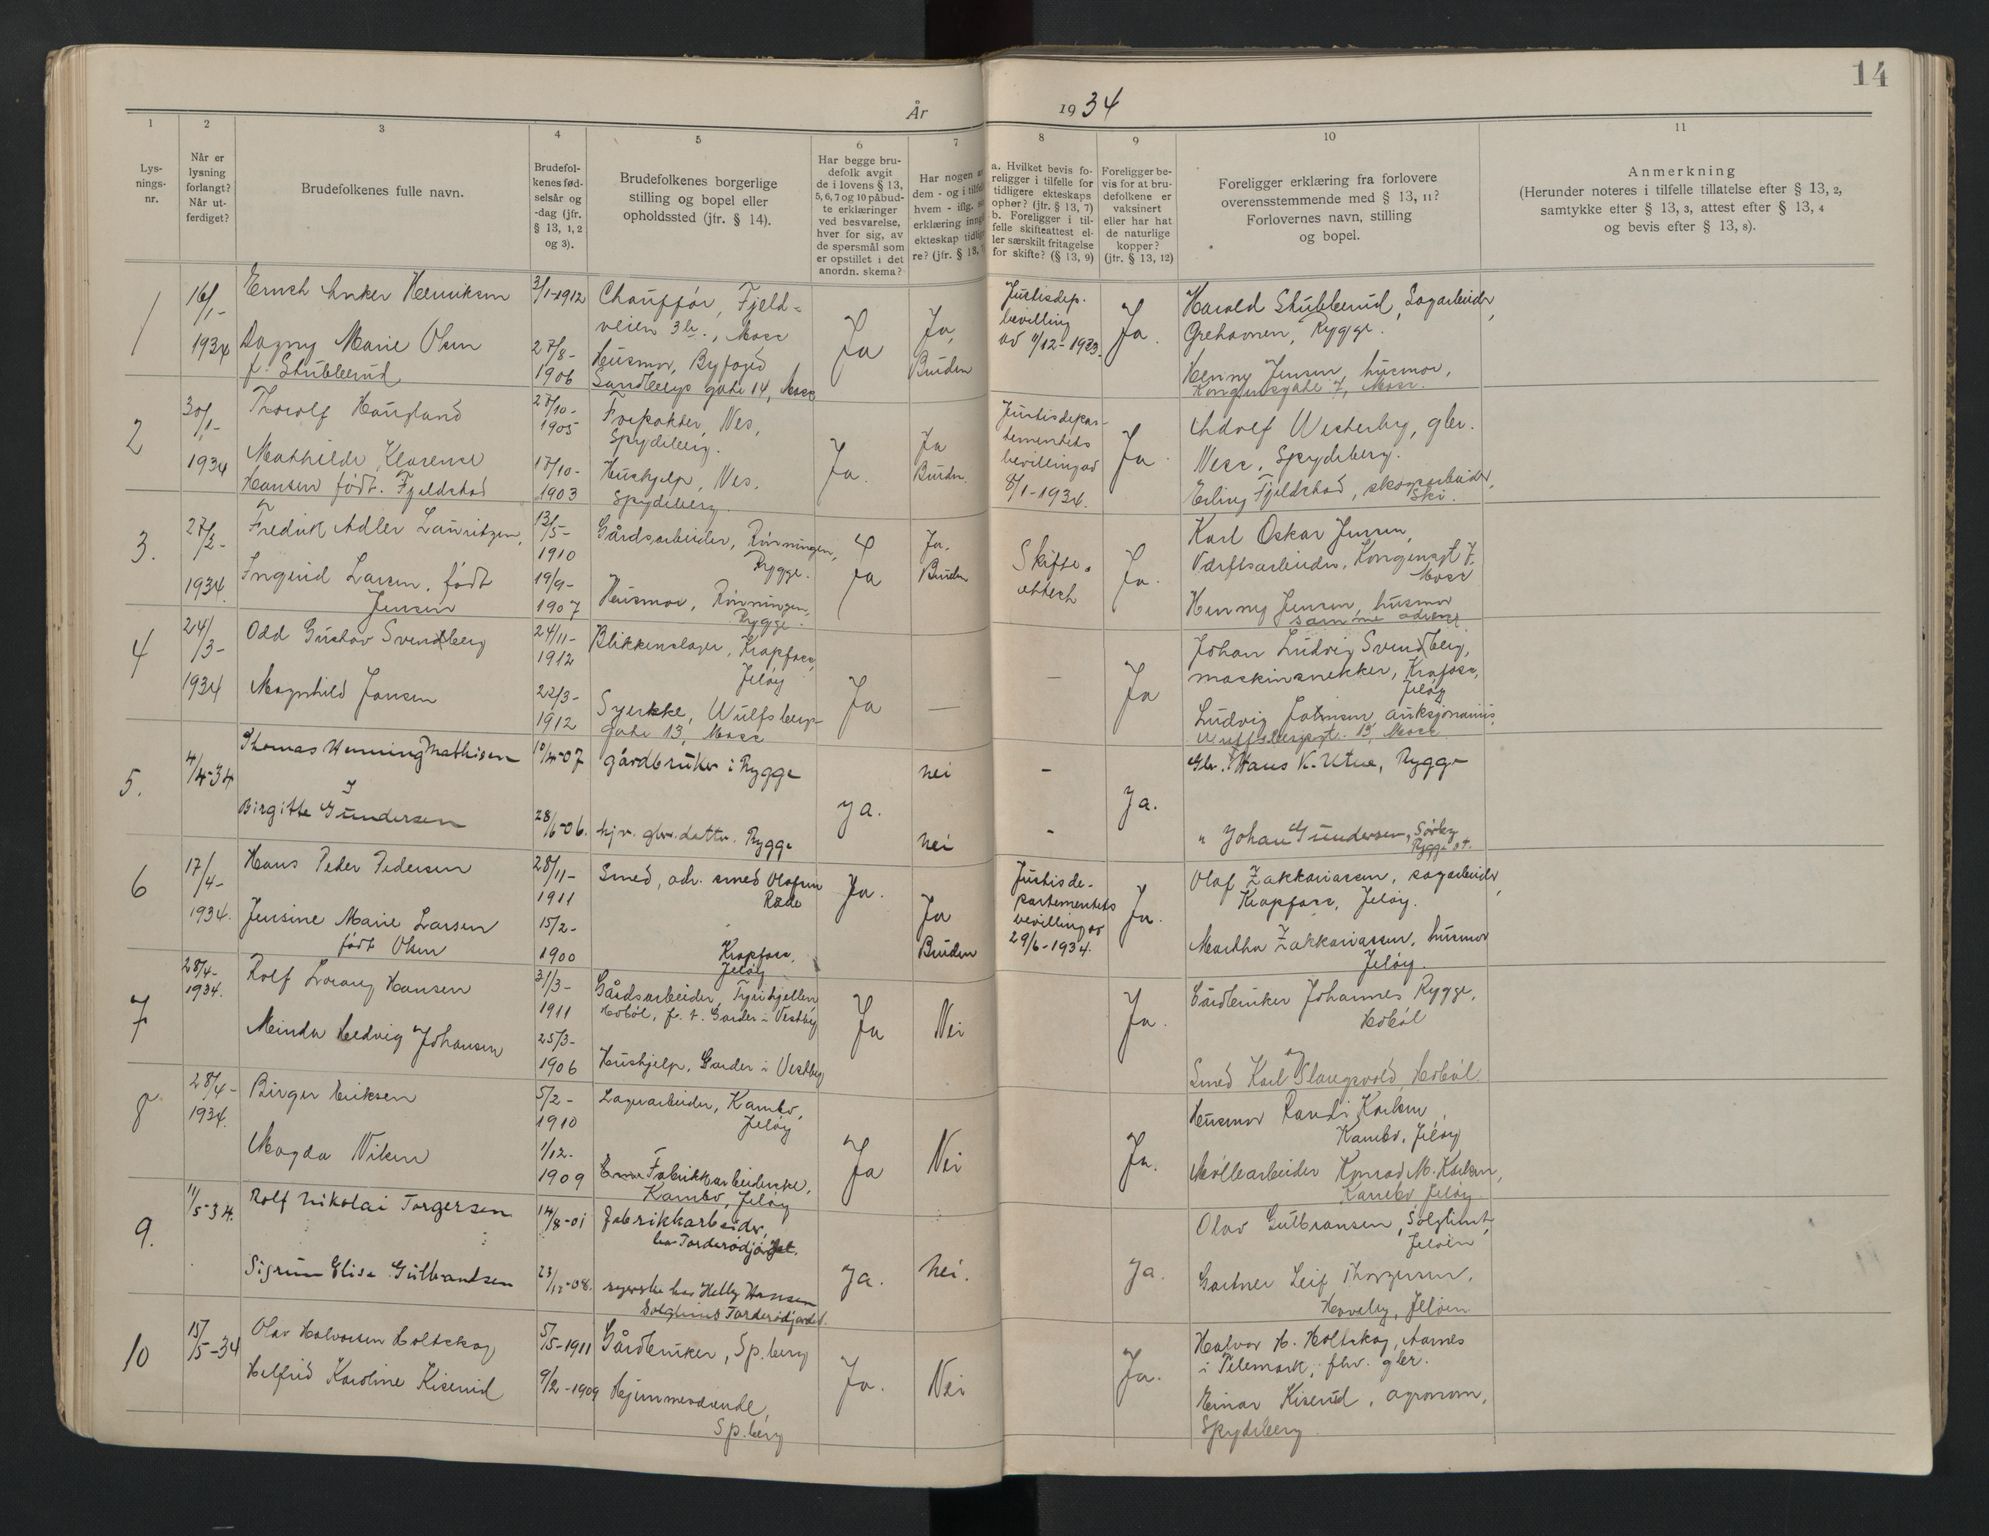 14
År 1934
1
2
3
4
5
6
7
8
9
10
11
Lys-
nings-
nr.
Når er
lysning
forlangt?
Når ut-
ferdiget?
Brudefolkenes fulle navn.
Brudefol-
kenes fød-
selsår og
-dag (jfr.
§ 13, 1, 2
og 3).
Brudefolkenes borgerlige
stilling og bopel eller
opholdssted (jfr. § 14).
Har begge bru-
defolk avgit
de i lovens § 13,
5, 6, 7 og 10 påbud-
te erklæringer
ved besvarelse,
hver for sig, av
de spørsmål som
er opstillet i det
anordn. skema?
Har nogen a
dem - og i tilfel
hvem - iflg.
erklæring inngå
ekteskap tidlige
re? (jfr. § 13, 7
a. Hvilket bevis fo-
religger i tilfelle for
tidligere ekteskaps
opher? (jfr. § 13, 7)
b. Foreligger i til-
felle skifteattest el-
ler særskilt fritagelse
for skifte? (§ 13, 9)
Foreligger be-
vis for at bru-
defolkene er
vaksinert
eller har hat
de naturlige
kopper?
(jfr. § 13, 12)
Foreligger erklæring fra forlovere
overensstemmende med § 13, 11?
Forlovernes navn, stilling
og bopel.
Anmerkning
(Herunder noteres i tilfelle tillatelse efter § 13, 2,
samtykke efter § 13, 3, attest efter § 13, 4
og bevis efter § 13, 8).
1
16/1-
1934
Ernst Anker Henriksen
Dagny Marie Olsen
f. Stubberud
3/1-1912
27/8-
1906
Chauffør, Fjeld-
veien 3b., Moss
Husmor, Byfoged
Sandbergs gate 14, Moss
Ja
Ja,
Bruden
Justisdep.
bevilling
av 11/12-1933.
Ja.
Harald Stubberud, Sagarbeider,
Grehavnen, Rygge.
Henny Jensen, husmor,
Kongensgate 7, Moss.
2
30/1-
1934
Thorolf Haugland
Mathilde Klarense
Hansen født. Fjeldstad
27/10-
1905
17/10-
1903
Forpakter, Nes,
Spydeberg.
Hushjelp, Nes,
Spydeberg.
Ja.
Ja
Bruden.
Justisdepar-
tementets
bevilling av
8/1-1934.
Ja.
Adolf Westerby, gbr.
Ness, Spydeberg.
Erling Fjeldstad, skogarbeider,
Ski.
3.
27/2-
1934.
Fredrik Adler Lauritzen,
Ingerid Larsen, født
Jensen
13/5-
1910
19/9-
1907
Gårdsarbeider, Rønningen,
Rygge.
Husmor, Rønningen,
Rygge.
Ja
Ja.
Bruden
Skifte-
attest
Ja.
Karl Oskar Jensen,
Værftsarbeider, Kongensgt 7.
Moss
Henny Jensen, husmor
samme adresse
4
24/3-
1934
Odd Gustav Svendberg
Magnhild Jansen
24/11-
1912
22/3-
1912
Blikkenslager, Krapfoss,
Jeløy
Syerske, Wulfsberg-
gate 13, Moss
Ja
—
—
Ja
Johan Ludvig Svendberg,
maskinsnekker, Krafoss,
Jeløy
Ludvig Johnsen, auksjonarius,
Wulfsbergsgt. 13, Moss.
5.
4/4-34
Thomas Henning Mathisen
Birgitte J Gundersen
10/4-07
28/6-06.
gårdbruker i Rygge
hjv. gbr. dattr. Rygge
ja.
nei
nei
-
-
Ja.
Gbr. Hans K. Utne, Rygge
" Johan Gundersen, Sørby
Rygge st.
6
17/4-
1934.
Hans Peder Pedersen
Jensine Marie Larsen
født Olsen
28/11-
1911
15/2-
1900
Smed, adr. smed Olafsen
Råde
Krapfoss,
Jeløy
Ja.
Ja
Bruden
Justisde-
partementets
bevilling av
29/6-1934.
Ja.
Olaf Zakkariassen, sagarbeider,
Krapfoss, Jeløy.
Martha Zakkariassen, husmor
Jeløy.
7
28/4-
1934.
Rolf Lorang Hansen
Minda Hedvig Johansen
31/3-
1911
25/3-
1906
Gårdsarbeider, Tyrihjellen,
Hobøl, f. t. Garder i Vestby
Hushjelp, Garder i Vestby
Ja
Nei
Ja.
Gårdbruker Johannes Rygge,
Hobøl
Smed Karl Slangsvold, Hobøl.
8
28/4-
1934.
Birger Eriksen
Magda Nilsen
5/2-
1910
1/12.
1909
Lagerarbeider, Kambo,
Jeløy
Fabrikkarbeiderske,
Kambo, Jeløy
Ja
Nei
Ja.
Husmor Randi Karlsen,
Kambo, Jeløy
Møllearbeider Konrad M. Karlsen,
Kambo Jeløy.
9.
11/5-34.
Rolf Nikolai Torgersen
Sigrun Elise Gulbrandsen
14/8-01
23/12-08.
Fabrikkarbeider,
Torderødjordet.
syerske hos Helly Hansen
Solglimt Torderødjordet.
Ja.
nei.
Ja.
Olav Gulbransen, Solglimt,
Jeløen
Gartner Leif Thorgersen,
Haveby, Jeløen
10
15/5-34
Olav Halvorsen Holtskog
Helfrid Karoline Kiserud
5/5-1911
9/2-1909
Gårdbruker, Sp.berg
Hjemmeværende,
Sp.berg
Ja.
Nei
Ja.
Halvor H. Holtskog, Aarnes
i Telemark, fhv. gbr.
Einar Kiserud, agronom,
Spydeberg.